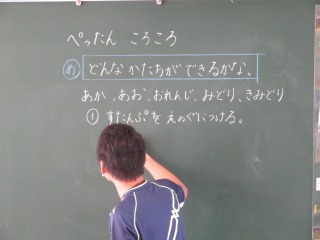 ぺったん ころころ
め どんな かたちが できるかな。
あか、あお、おれんじ、みどり、きみどり
① すたんぷを えのぐにつける。